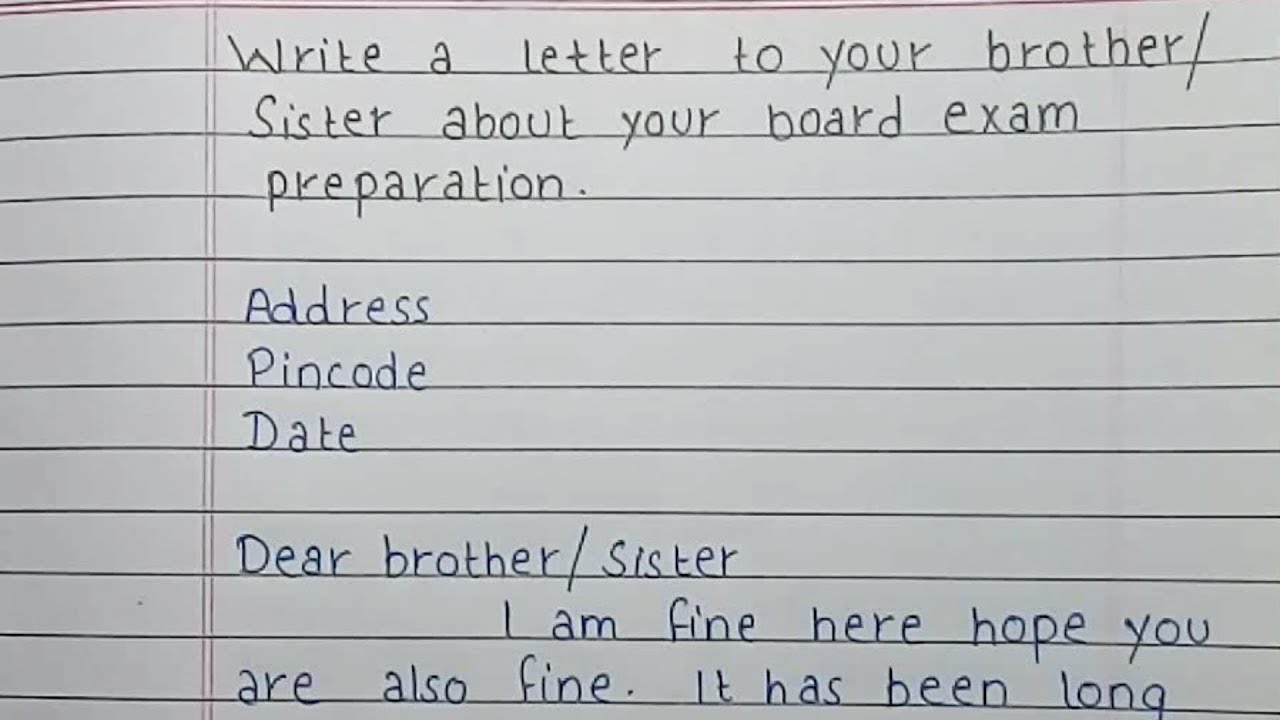 Write a letter to your brother/
Sister about your board exam
preparation.
Address
Pincode
Date
Dear brother/Sister
I am fine here hope you
are also fine. It has been long